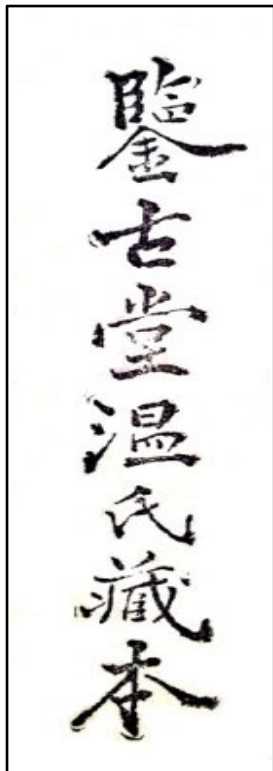 鑒古堂温氏藏本